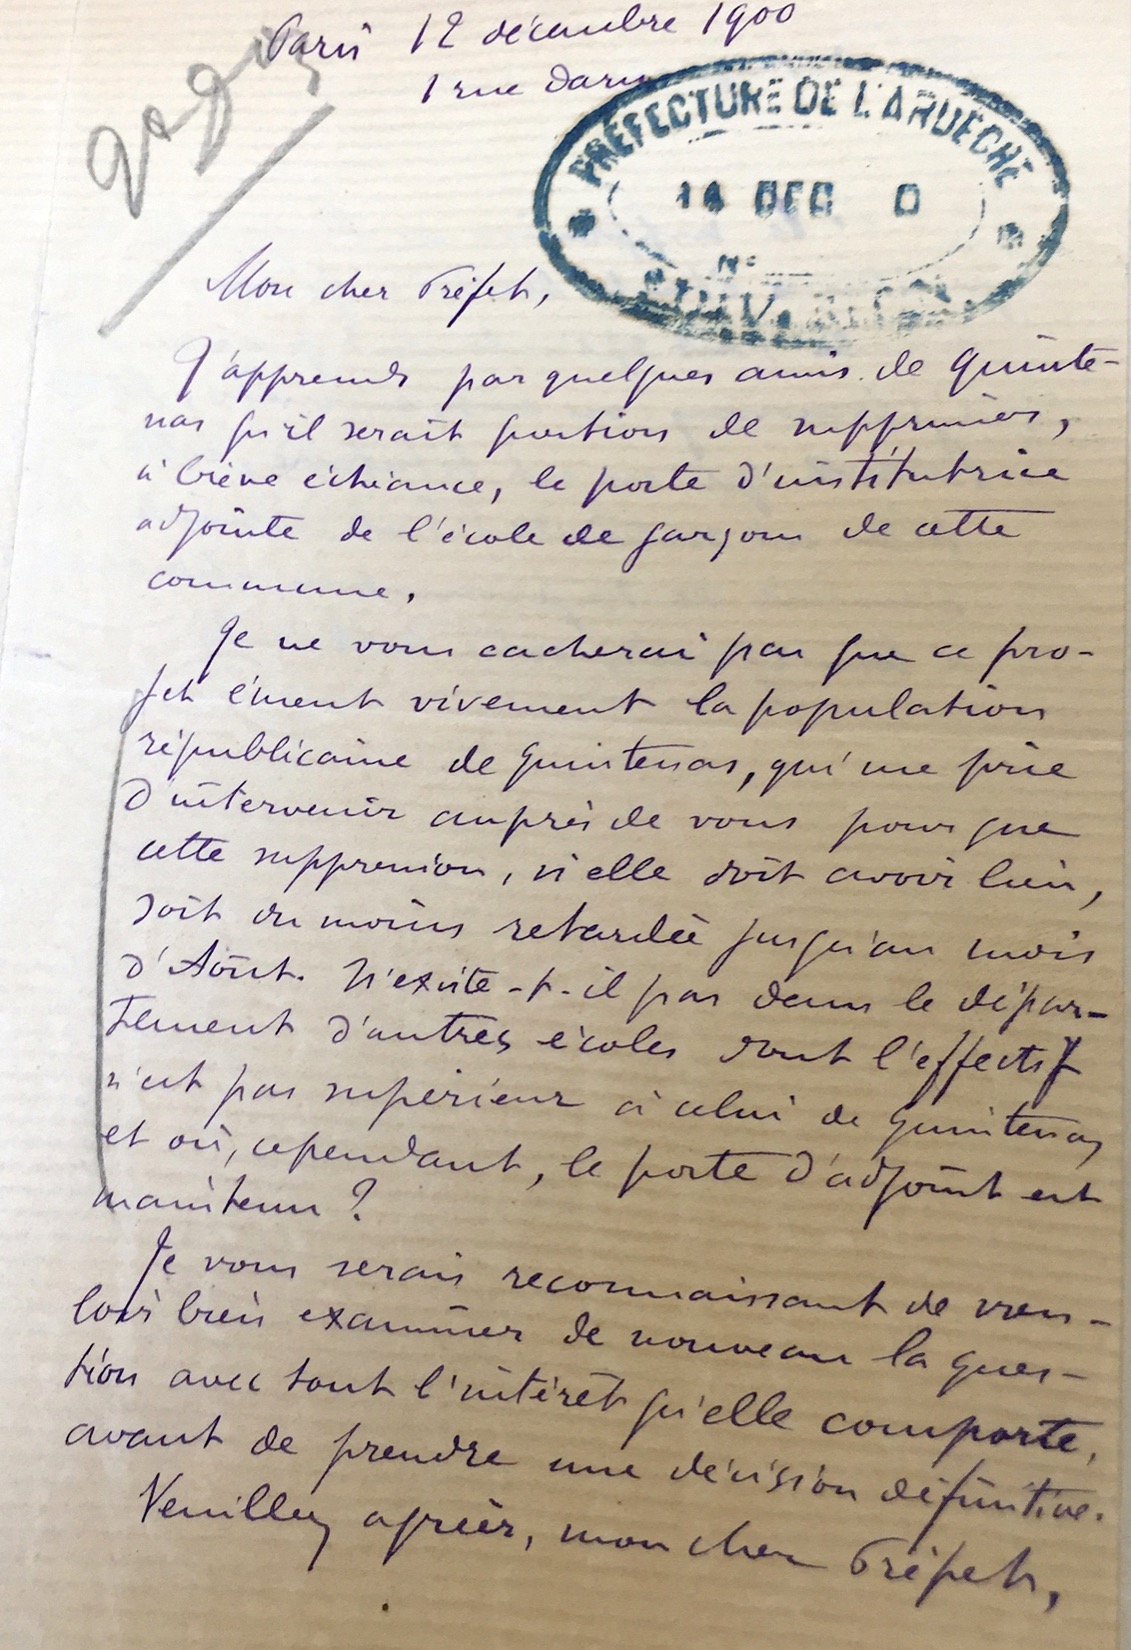 Paris 12 décembre 1900
1 rue Daru
PRÉFECTURE DE L'ARDÈCHE
14 DEC 0
N°
Mon cher Préfet,
J'apprends par quelques amis de Quinte-
nas qu'il serait question de supprimer,
à brève échéance, le poste d'institutrice
adjointe de l'école de garçons de cette
commune.
Je ne vous cacherai pas que ce pro-
jet émeut vivement la population
républicaine de Quintenas, qui me prie
d'intervenir auprès de vous pour que
cette suppression, si elle doit avoir lieu,
soit du moins retardée jusqu'au mois
d'Août. N'existe-t-il pas dans le dépar-
tement d'autres écoles dont l'effectif
n'est pas supérieur à celui de Quintenas
et où, cependant, le poste d'adjoint est
maintenu ?
Je vous serais reconnaissant de vou-
loir bien examiner de nouveau la ques-
tion avec tout l'intérêt qu'elle comporte,
avant de prendre une décision définitive.
Veuillez agréer, mon cher Préfet,